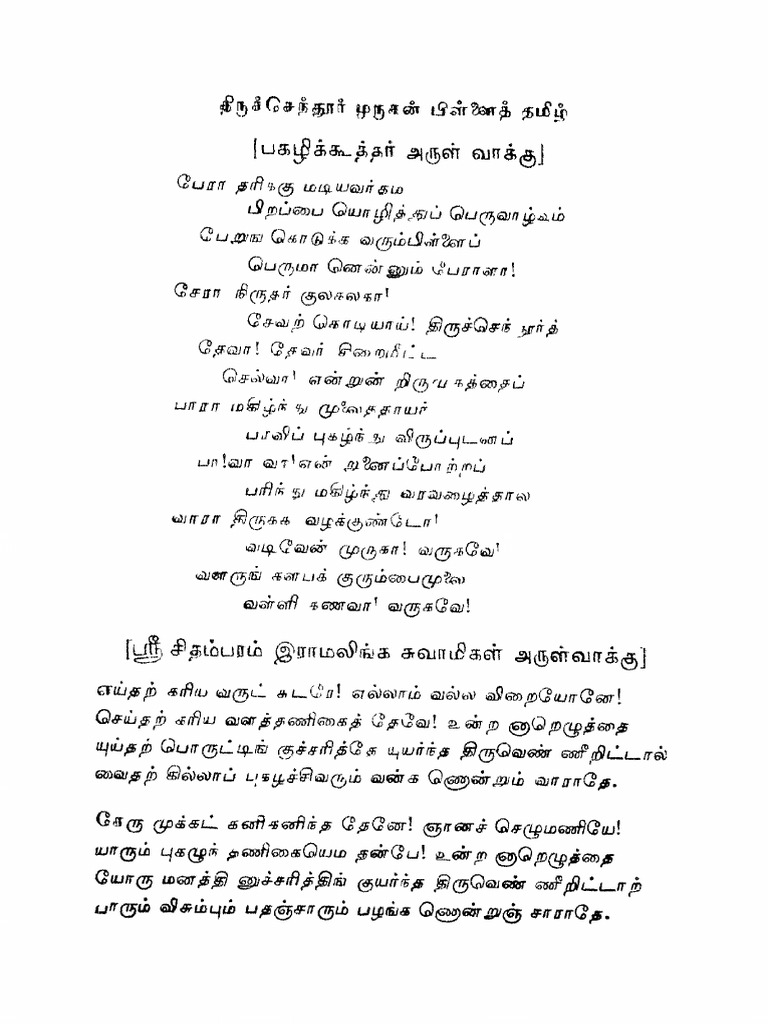 திருச்செந்தூர் முருகன் பிள்ளைத் தமிழ்
[பகழிக்கூத்தர் அருள் வாக்கு]
பேரா தரிக்கு மடியவர்தம
பிறப்பை யொழித்துப் பெருவாழ்வும்
பேறுங கொடுக்க வரும்பிள்ளைப்
பெருமா னென்னும் பேராளா!
சேரா நிருதர் குலகலகா!
சேவற் கொடியாய்! திருச்செந் தூர்த்
தேவா! தேவர் சிறைமீட்ட
செல்வா! என்றுன் றிருமு கத்தைப்
பாரா மகிழ்ந் து முலைதாயர்
பரவிப் புகழ்ந் து விருப்புடனப்
பா!வா வா!என் றுனைப்போற்றப்
பரிந் து மகிழ்ந்து வரவழைத்தால
வாரா திருகக வழக்குண்டோ!
வடிவேன் முருகா! வருகவே!
வளருங் களபக் குரும்பைமுலை
வள்ளி கணவா! வருகவே!
[ஸ்ரீ சிதம்பரம் இராமலிங்க சுவாமிகள் அருள்வாக்கு]
எய்தற் கரிய வருட் சுடரே! எல்லாம் வல்ல விறையோனே!
செய்தற் கரிய வளத்தணிகைத் தேவே! உன்ற னாறெழுத்தை
யுய்தற் பொருட்டிங் குச்சரித்தே யுயர்ந்த திருவெண் ணீறிட்டால்
வைதற் கில்லாப் புகழச்சிவரும் வன்க ணொன்றும் வாராதே.
சேரு முக்கட் கனிகனிந்த தேனே! ஞானச் செழுமணியே!
யாரும் புகழுந் தணிகையெம தன்பே! உன்ற னாறெழுத்தை
யோரு மனத்தி னுச்சரித்திங் குயர்ந்த திருவெண் ணீறிட்டாற்
பாரும் விசும்பும் பதஞ்சாரும் பழங்க ணொன்றுஞ் சாராதே.